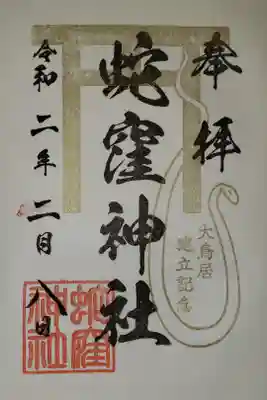 奉拝
大鳥居
建立記念
蛇窪神社
令和二年二月八日
蛇窪
神社